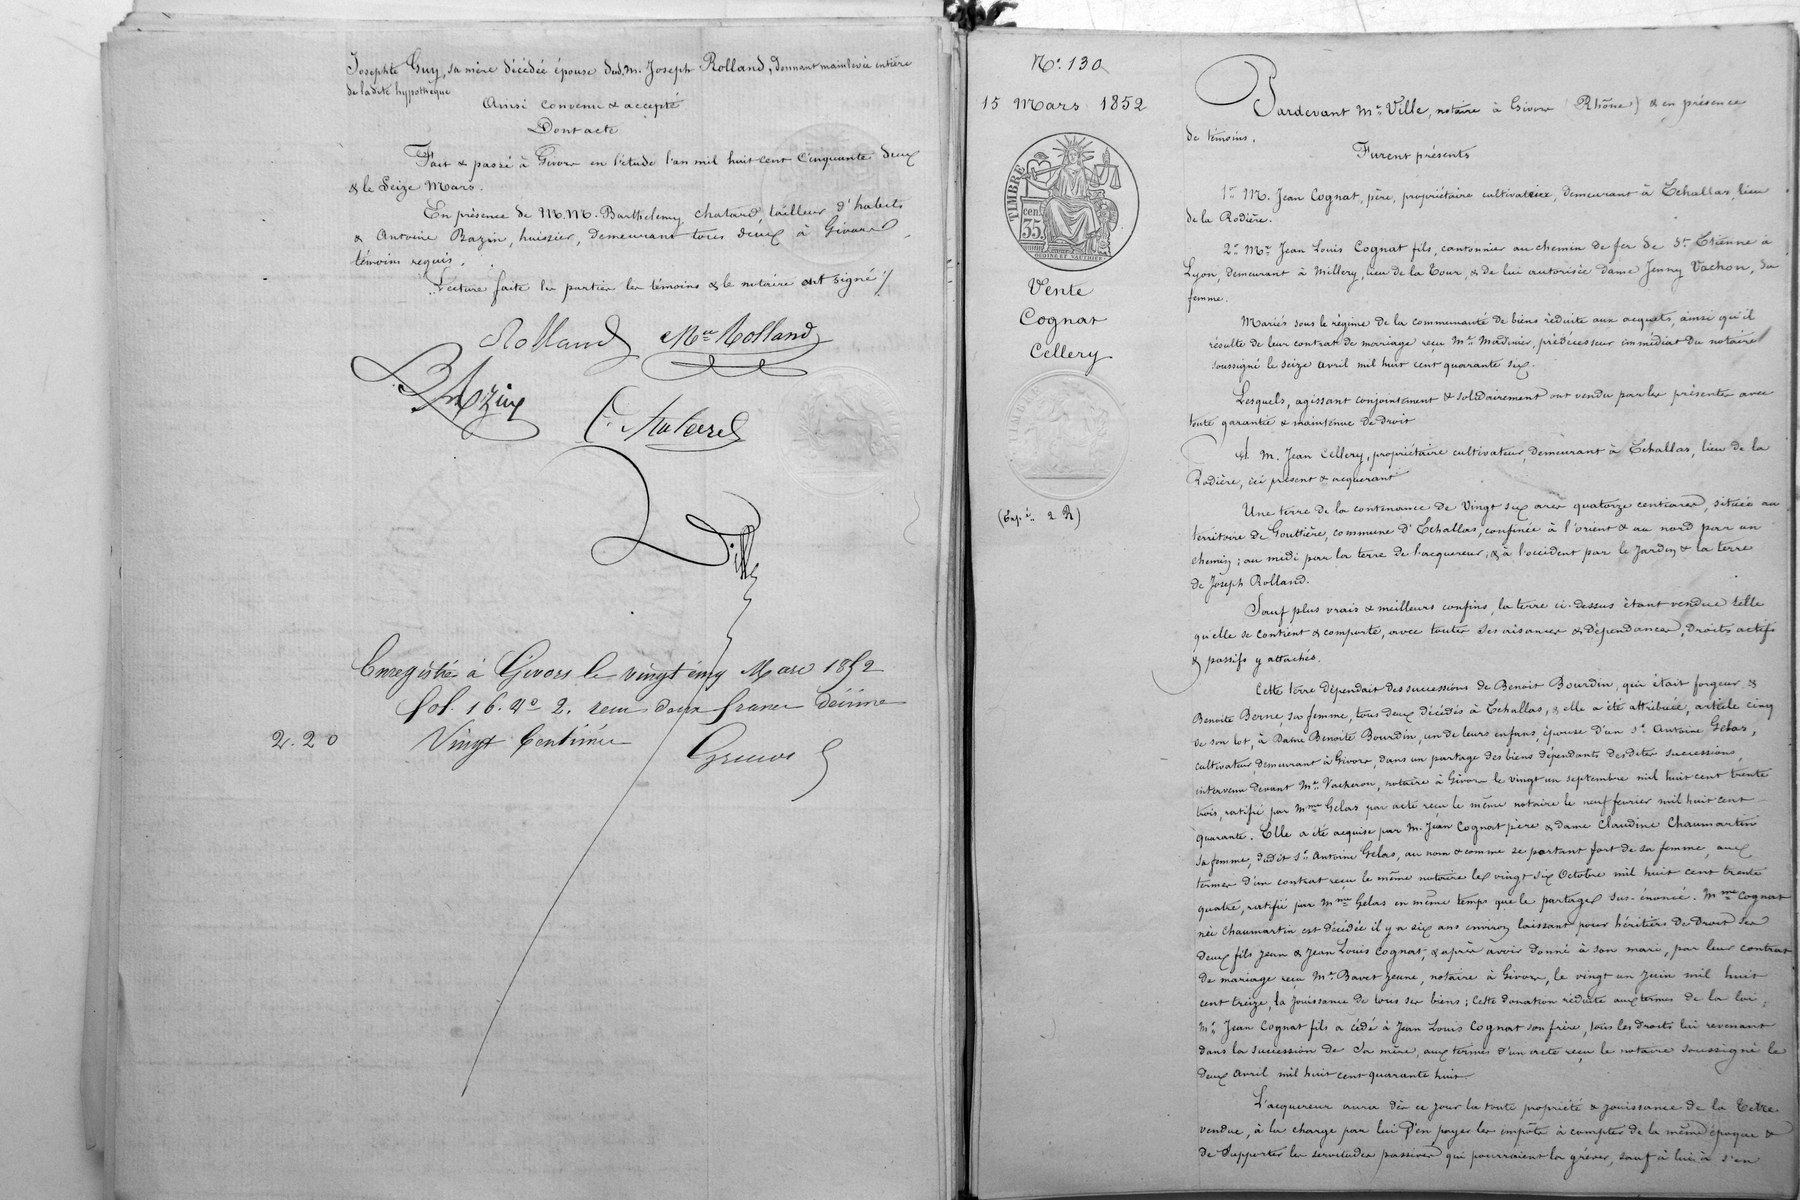 Josephte Guy, sa mère décédée épouse dud. M. Joseph Rolland, donnant mainlevée entière
de ladite hypothèque
Ainsi convenu & accepté
Dont acte
Fait & passé à Givors en l'étude l'an mil huit cent cinquante deux
& le Seize Mars.
En présence de M.M. Barthelemy chatard, tailleur d'habits
& Antoine Bazin, huissier, demeurant tous deux à Givors,
témoins requis.
Lecture faite les parties les témoins & le notaire ont signé /
Rolland Mce Rolland
Bazin
Ville
Enregistré à Givors le vingt cinq Mars 1852
fol. 16. Vo 2. reçu deux francs décime
2. 20 Vingt Centimes
No. 130
15 Mars 1852
TIMBRE
35 cent.
OUDINÉ ET GAUTHIER
Vente
Cognat
Cellery
(Exp. 2 R)
Pardevant Me Ville, notaire à Givors (Rhône) & en présence
de témoins.
Furent présents
1o M. Jean Cognat, père, propriétaire cultivateur, demeurant à Echallas, lieu
de la Rodière.
2o Mr Jean Louis Cognat fils, cantonnier au chemin de fer de St Etienne à
Lyon, demeurant à Millery, lieu de la Tour, & de lui autorisée dame Jenny Vachon, sa
femme.
Mariés sous le régime de la communauté de biens réduite aux acquets, ainsi qu'il
résulte de leur contrat de mariage reçu Me Madinier, prédécesseur immédiat du notaire
soussigné le seize avril mil huit cent quarante six.
Lesquels, agissant conjointement & solidairement ont vendu par les présentes avec
toute garantie & maintenue de droit
A M. Jean Cellery, propriétaire cultivateur, demeurant à Echallas, lieu de la
Rodière, ici présent & acquérant
Une terre de la contenance de Vingt six ares quatorze centiares, située au
territoire de Gouttière, commune d'Echallas, confinée à l'orient & au nord par un
chemin; au midi par la terre de l'acquereur; & à l'occident par le Jardin & la terre
de Joseph Rolland.
Sauf plus vrais & meilleurs confins, la terre ci-dessus étant vendue telle
qu'elle se contient & comporte, avec toutes ses aisances & dépendances, droits actifs
& passifs y attachés.
Cette terre dépendait des successions de Benoit Bourdin, qui était forgeur &
Benoite Berne, sa femme, tous deux décédés à Echallas, & elle a été attribuée, article cinq
de son lot, à Dame Benoite Bourdin, un de leurs enfans, épouse d'un sr Antoine Gelas,
cultivateur, demeurant à Givors, dans un partage des biens dépendants desdites successions,
intervenu devant Me Vacheron, notaire à Givors le vingt un septembre mil huit cent trente
trois, ratifié par Mme Gelas par acte reçu le même notaire le neuf fevrier mil huit cent
quarante. Elle a été acquise par M. Jean Cognat père & dame Claudine Chaumartin
sa femme, dudit sr Antoine Gelas, au nom & comme se portant fort de sa femme, aux
termes d'un contrat reçu le même notaire les vingt six Octobre mil huit cent trente
quatre, ratifié par Mme Gelas en même temps que le partage sus-énoncé. Mme Cognat
née Chaumartin est décédée il y a six ans environ laissant pour héritiers de droit ses
deux fils Jean & Jean Louis Cognat, & après avoir donné à son mari, par leur contrat
de mariage reçu Me Bavet jeune, notaire à Givors, le vingt un juin mil huit
cent treize, la jouissance de tous ses biens; cette donation réduite aux termes de la loi.
Mr Jean Cognat fils a cédé à Jean Louis Cognat son frère, tous les droits lui revenant
dans la succession de sa mère, aux termes d'un acte reçu le notaire soussigné le
deux avril mil huit cent quarante huit.
L'acquereur aura dès ce jour la toute propriété & jouissance de la terre
vendue, à la charge par lui d'en payer les impôts à compter de la même époque &
de supporter les servitudes passives qui pourraient la gréver, sauf à lui à s'en